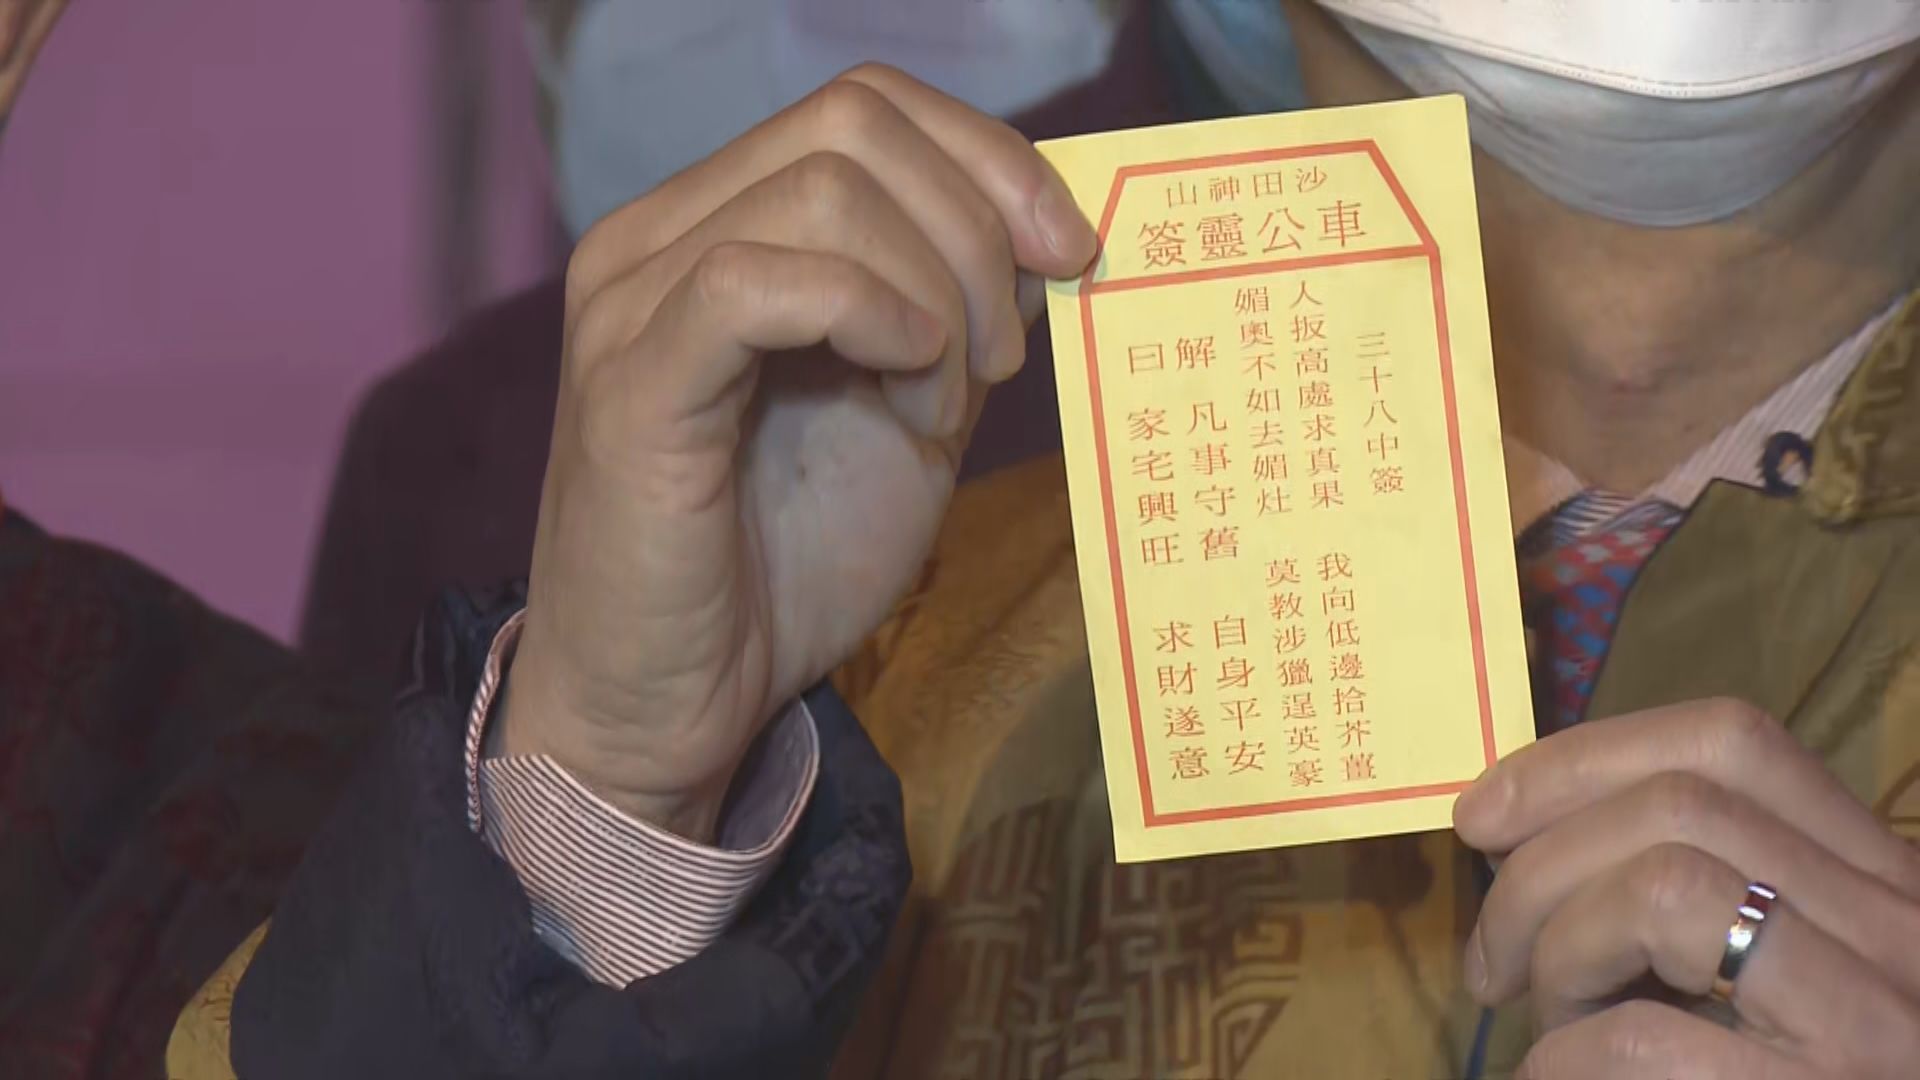 沙田神山
車公靈簽
三十八中簽
人扳高處求真果 我向低邊拾芥薑
媚奧不如去媚灶 莫教涉獵逞英豪
解 凡事守舊 自身平安
曰 家宅興旺 求財遂意